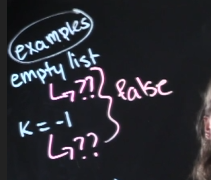 examples
empty list
↳ ??
false
K = -1
↳ ??